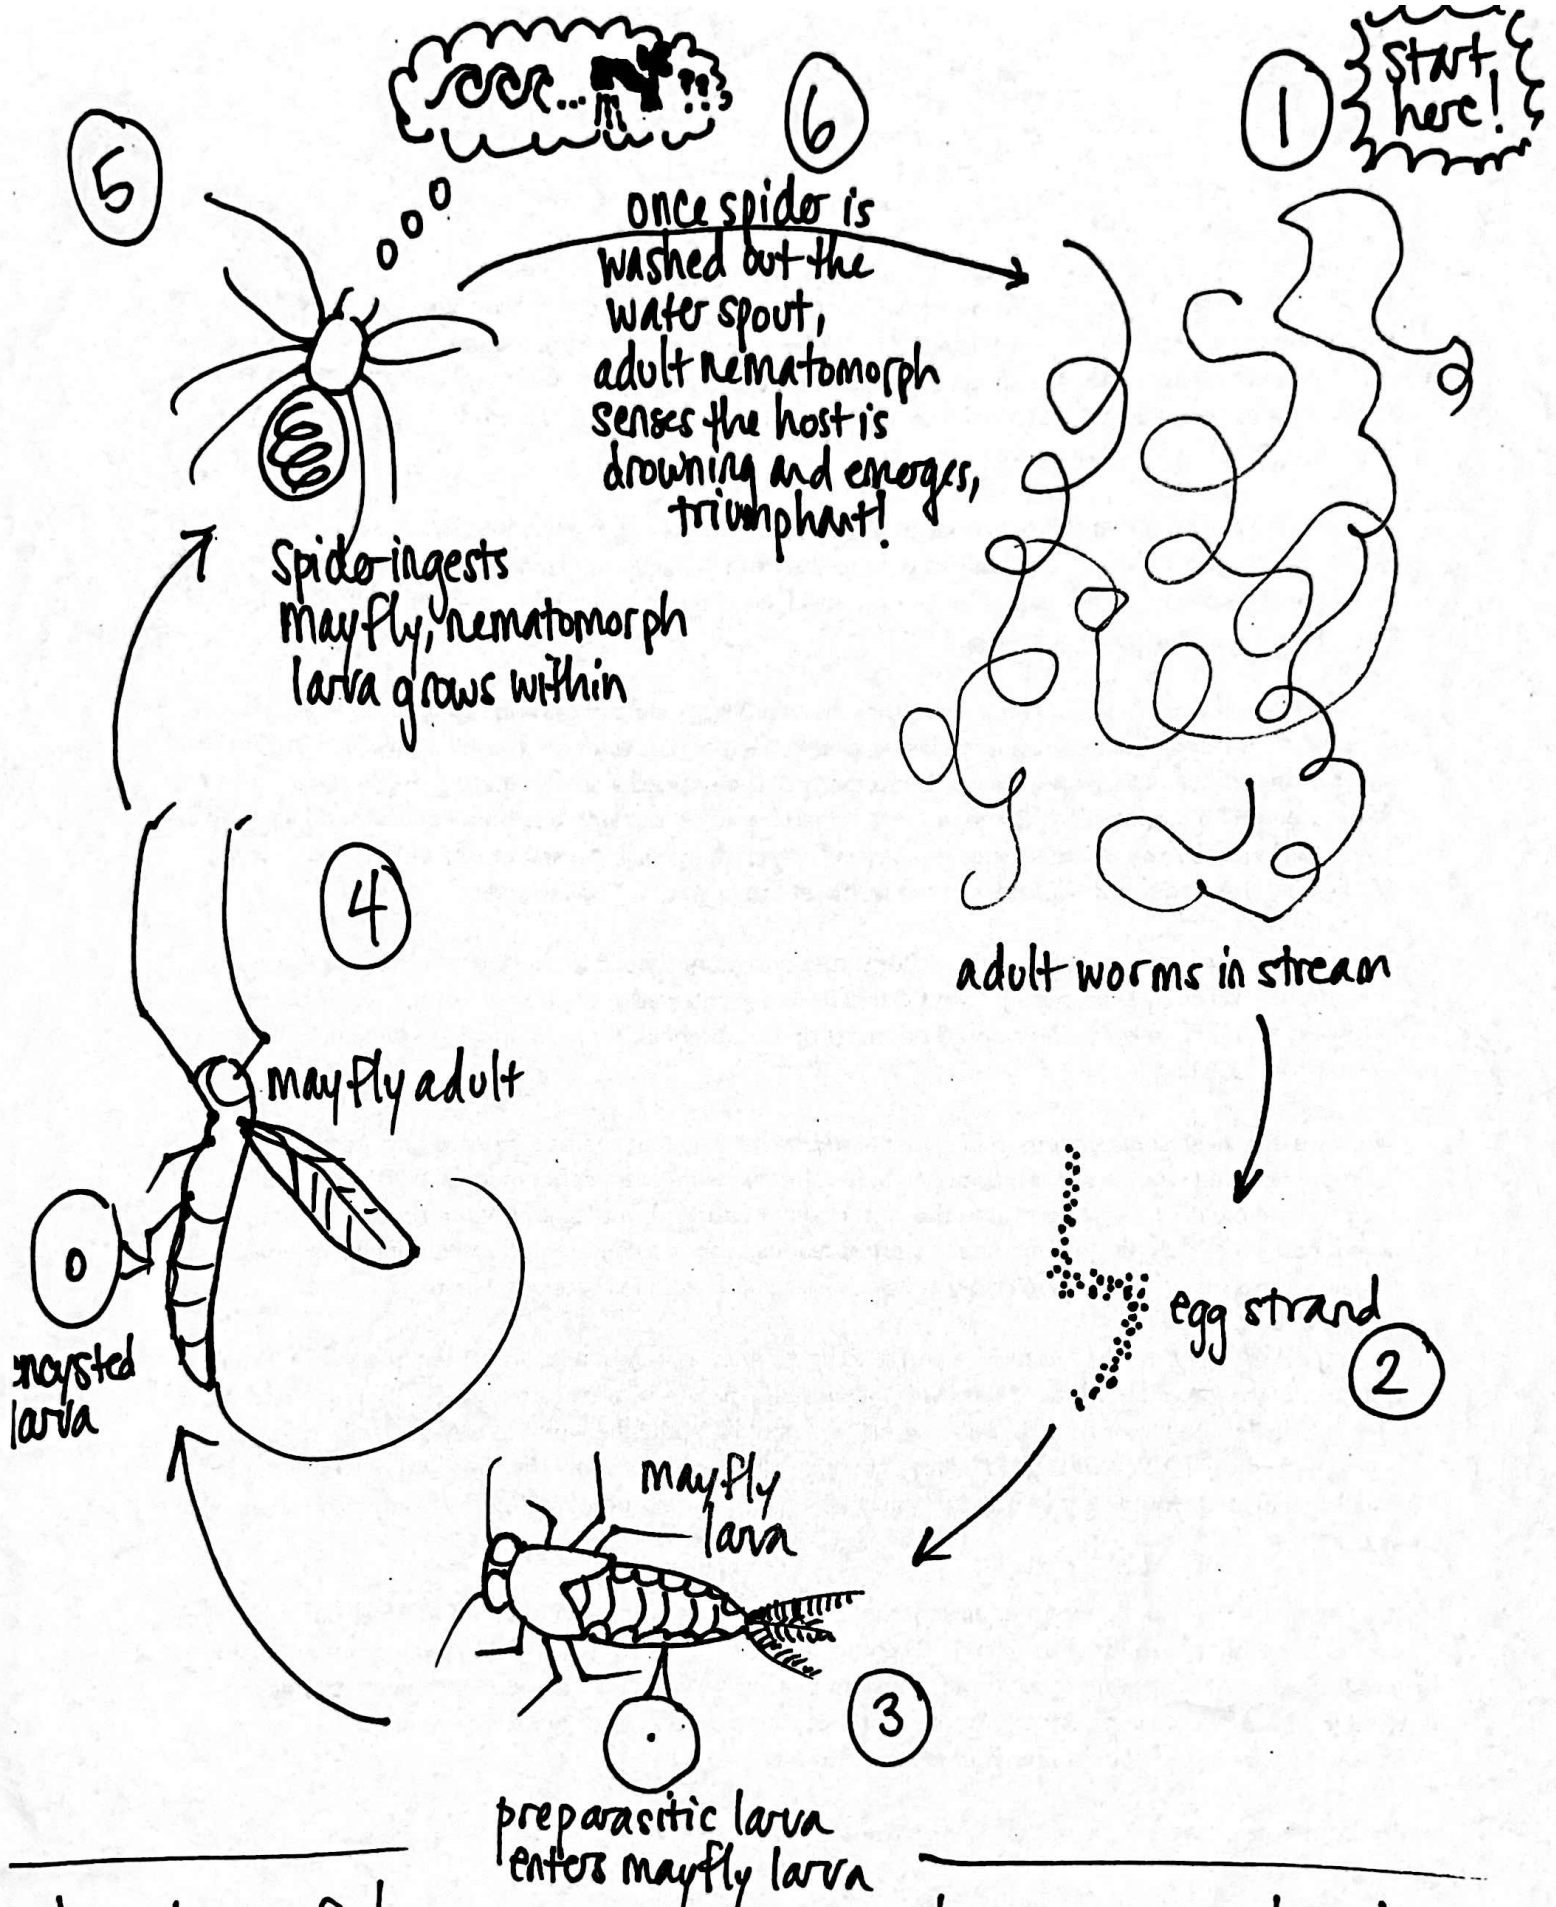 1
Start
here!
adult worms in stream
egg strand
2
mayfly
larva
3
preparasitic larva
enters mayfly larva
4
mayfly adult
encysted
larva
5
spider ingests
mayfly, nematomorph
larva grows within
6
once spider is
washed out the
water spout,
adult nematomorph
senses the host is
drowning and emerges,
triumphant!